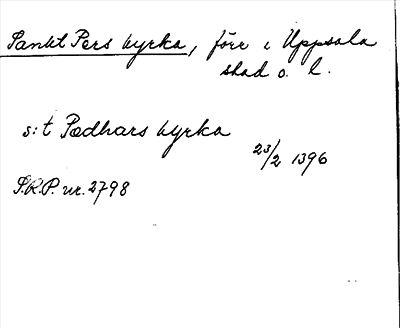 Sankt Pers kyrka, förr i Uppsala
stad o. l.
s:t Pædhars kyrka
23/2 1396
S.R.P. nr. 2798